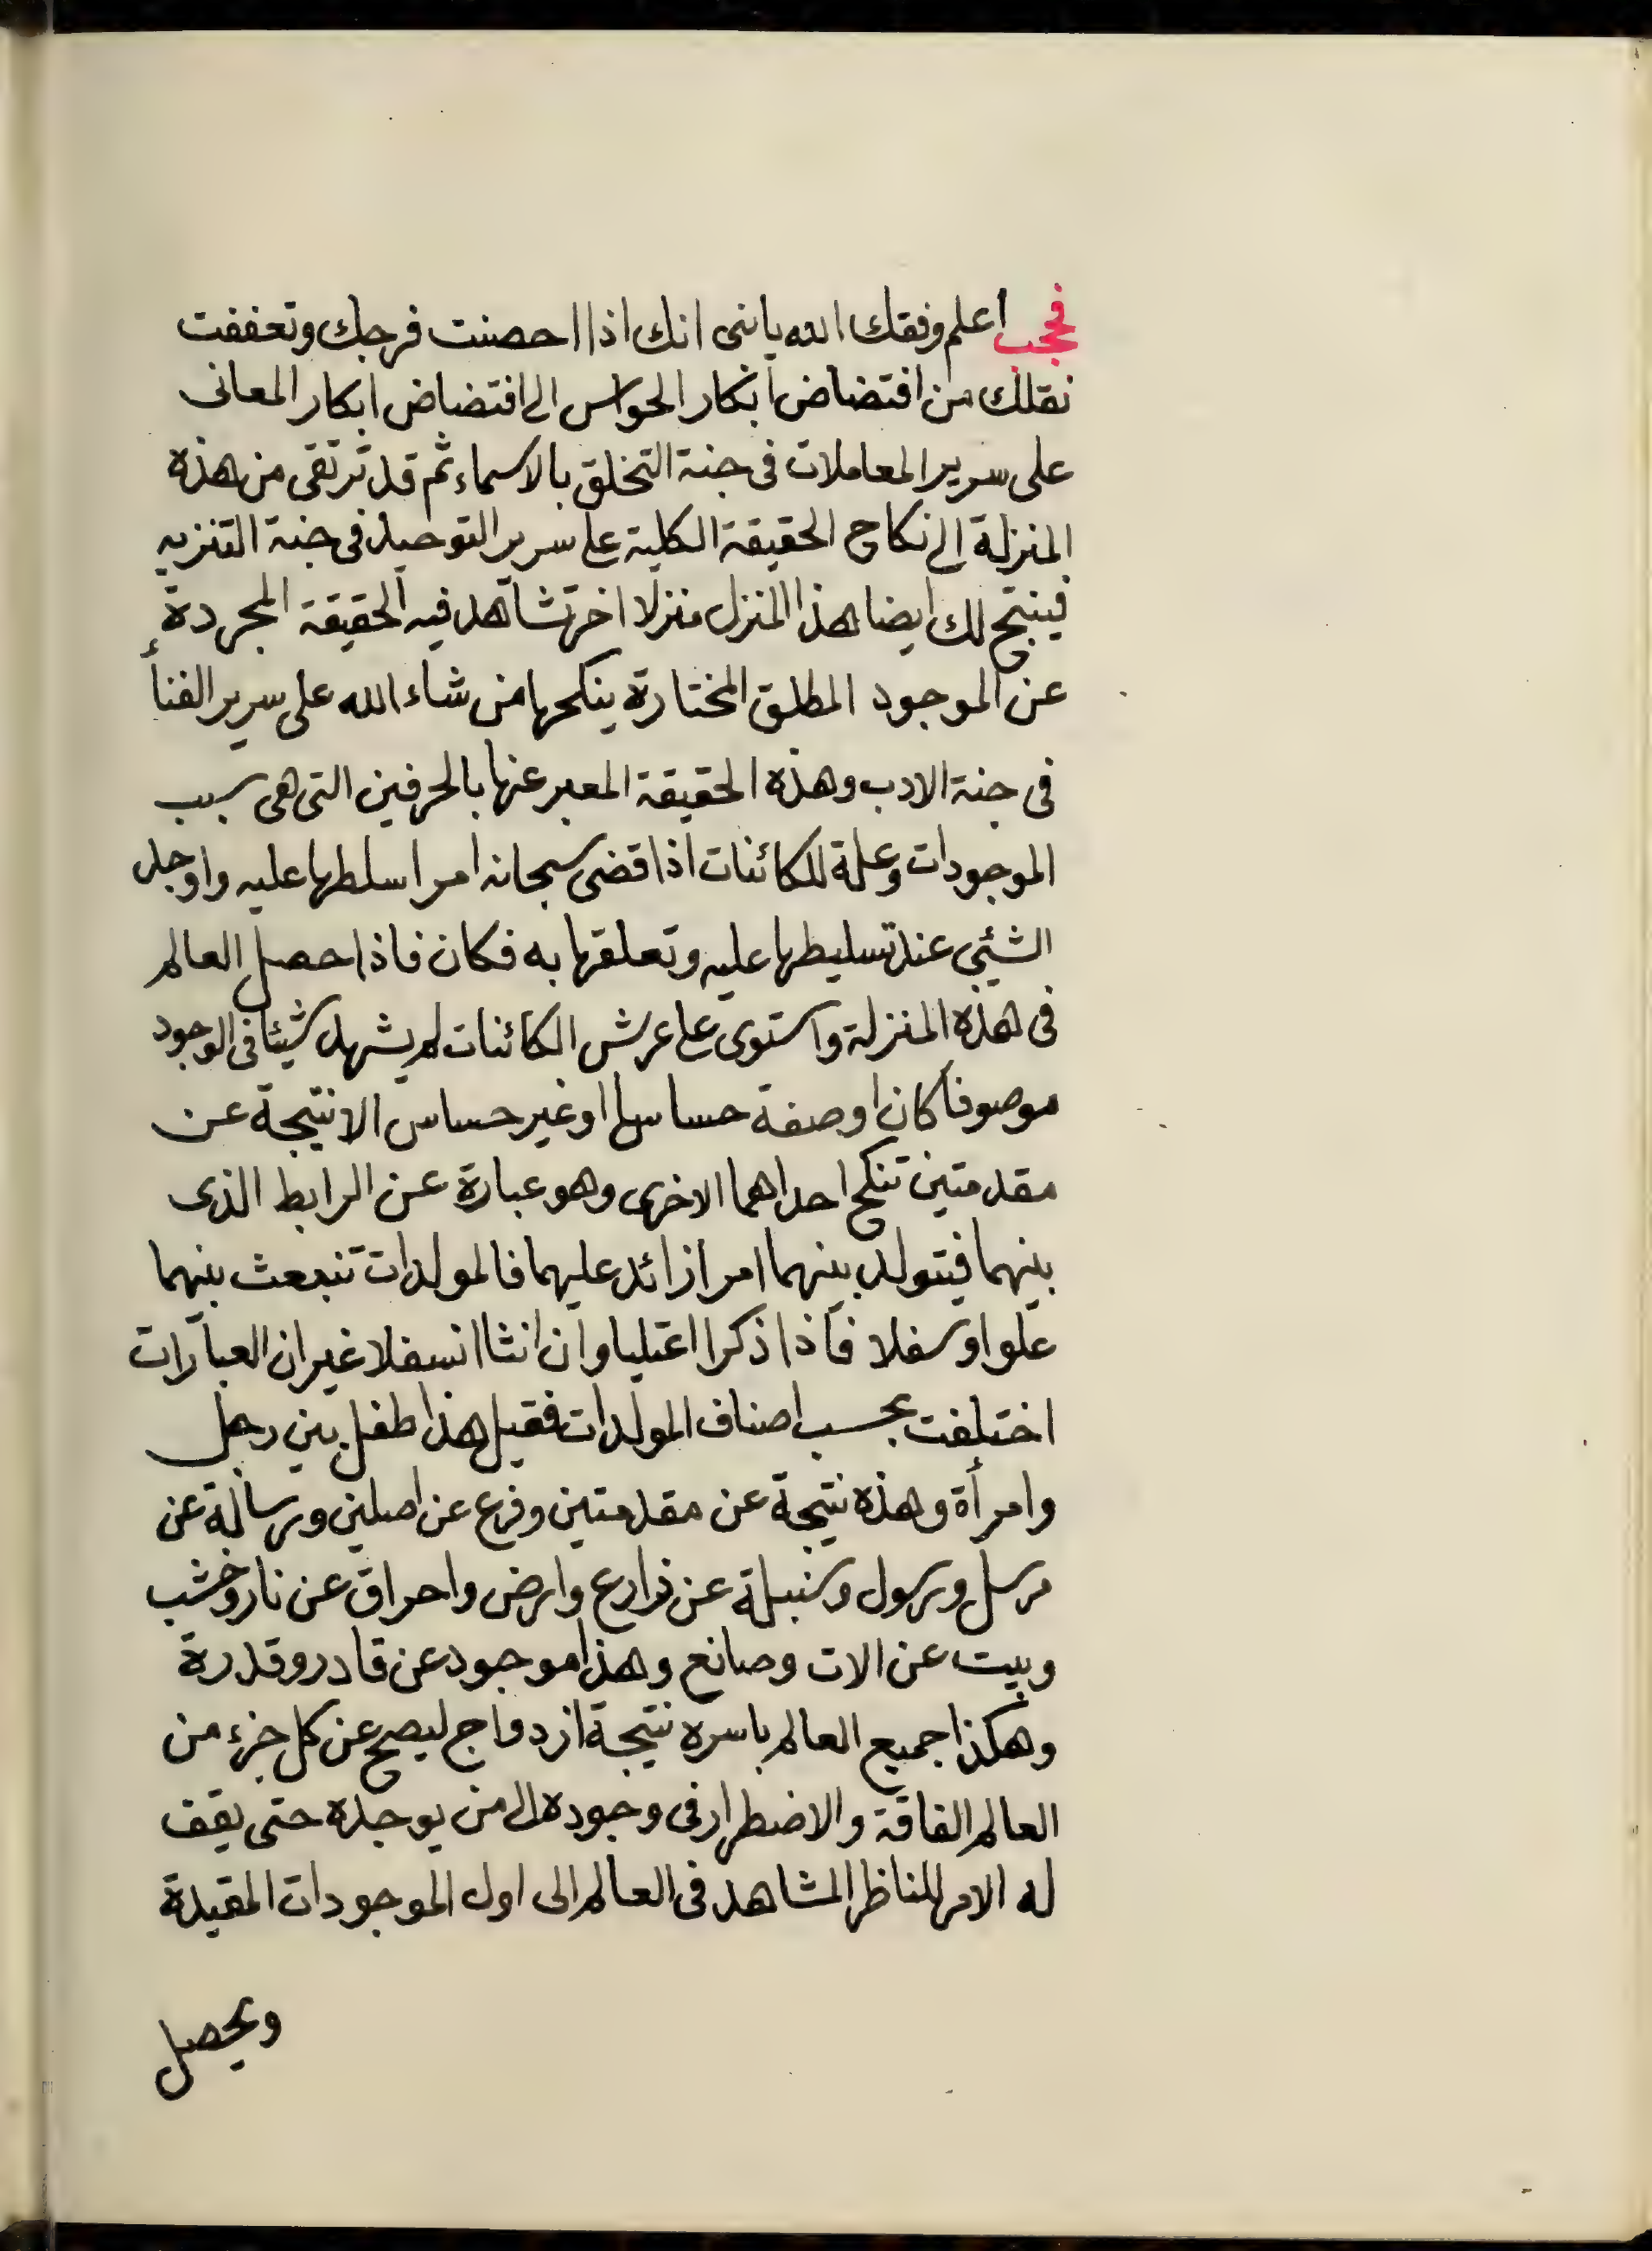 فحجب اعلم وفقك الله يابنى انك اذا احصنت فرجك وتعففت
نقلك من افتضاض ابكار الحواس الى افتضاض ابكار المعانى
على سرير المعاملات فى جنة التخلق بالاسماء ثم قد ترتقى من هذه
المنزلة الى نكاح الحقيقة الكلية على سرير التوحيد فى جنة التنزيه
فينتج لك ايضا هذا المنزل منزلا اخر تشاهد فيه الحقيقة المجردة
عن الموجود المطلق المختارة ينكحها من شاء الله على سرير الفنأ
فى جنة الادب وهذه الحقيقة المعبر عنها بالحرفين التى هى سبب
الموجودات وعلة للكائنات اذا قضى سبحانه امرا سلطها عليه واوجد
الشئي عند تسليطها عليه وتعلقها به فكان فاذا حصل العالم
فى هذه المنزلة واستوى على عرش الكائنات لم يشهد شيئا فى الوجود
موصوفا كان او صفة حساسا او غير حساس الا نتيجة عن
مقدمتين تنكح احداهما الاخرى وهو عبارة عن الرابط الذى
بينهما فيتولد بينهما امرا زائد عليهما فالمولدات تنبعث بينهما
علوا وسفلا فاذا ذكرا اعتليا وان انثا انسفلا غير ان العبارات
اختلفت بحسب اصناف المولدات فقيل هذا طفل بين رجل
وامرأة وهذه نتيجة عن مقدمتين وفرع عن اصلين ورسالة عن
مرسل ورسول وسنبلة عن زارع وارض واحراق عن نار وخشب
وبيت عن الات وصانع وهذا موجود عن قادر وقدرة
وهكذا جميع العالم باسره نتيجة ازدواج ليصح عن كل جزء من
العالم الفاقة والاضطرار فى وجوده الى من يوجده حتى يقف
له الامر للناظر المشاهد فى العالم الى اول الموجودات المقيدة
ويحصل